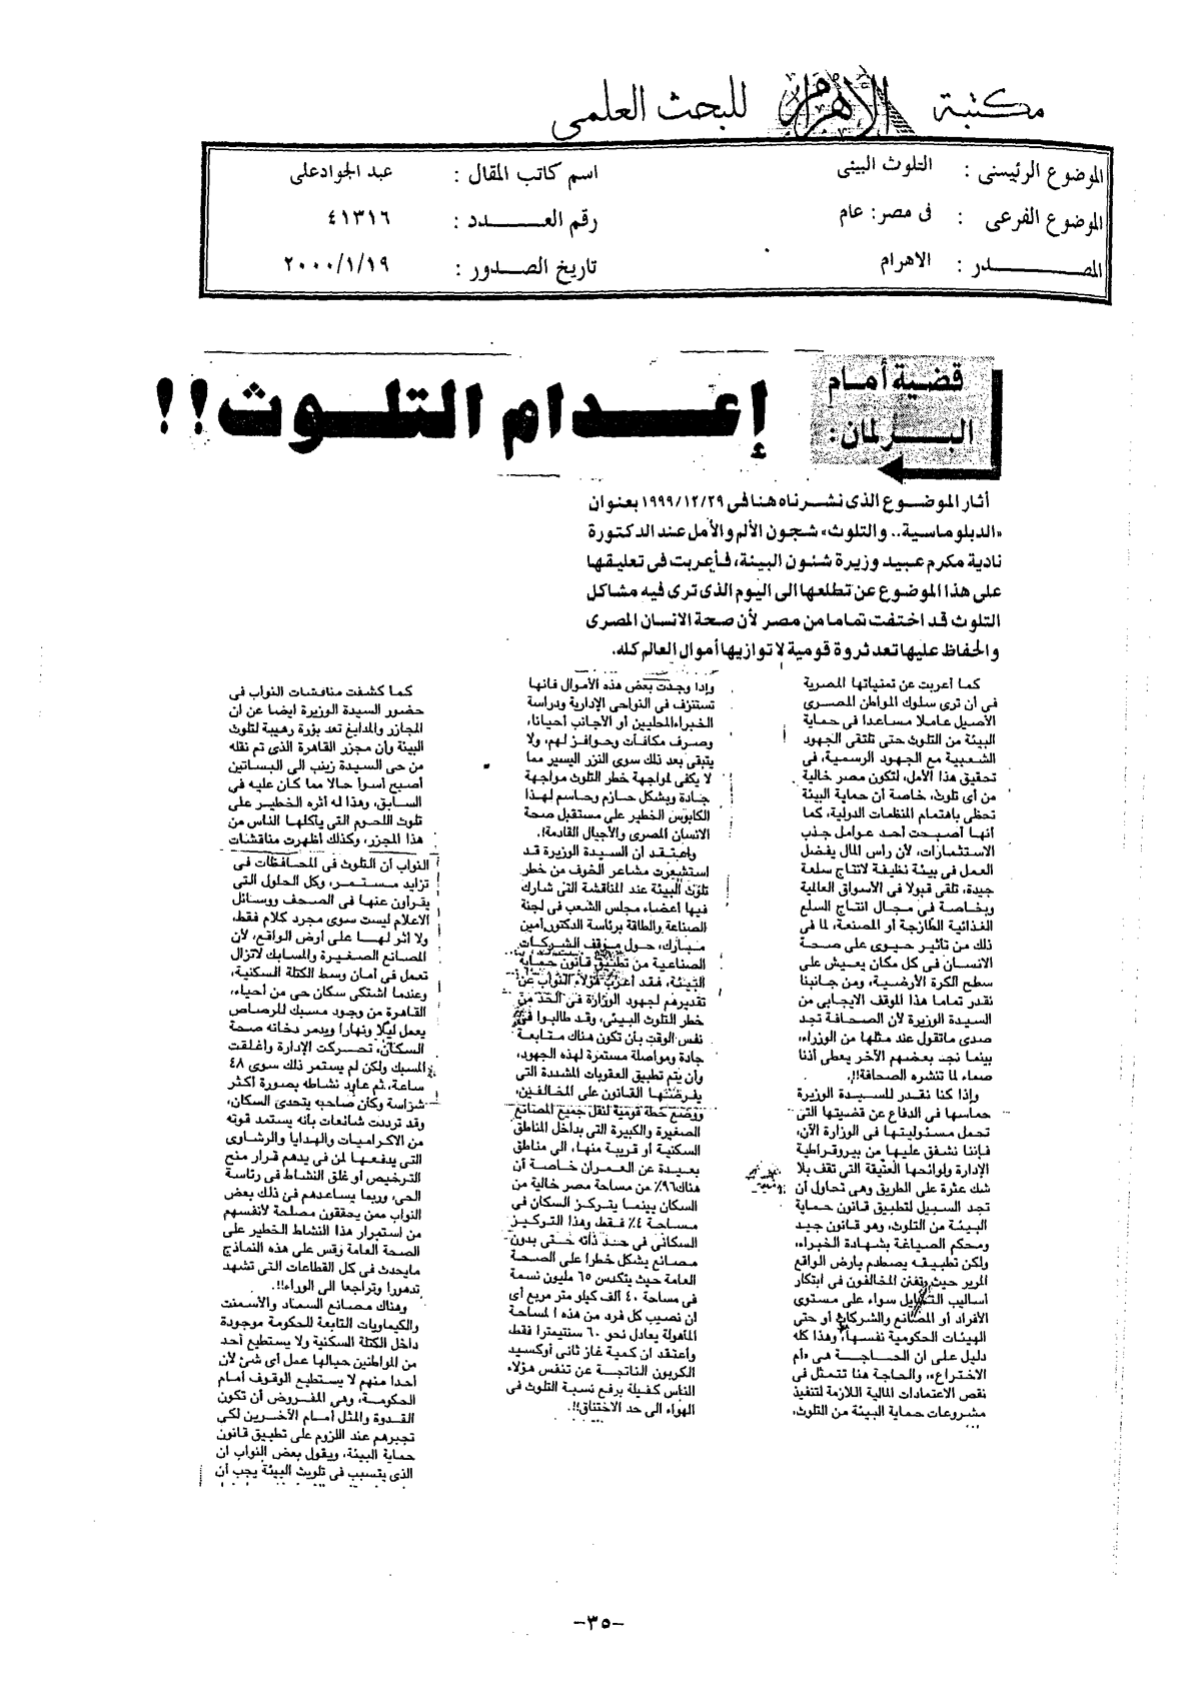 مكتبة الأهرام للبحث العلمى
الموضوع الرئيسى : التلوث البيئى
اسم كاتب المقال : عبد الجواد على
الموضوع الفرعى : فى مصر: عام
رقم العـــــدد : ٤١٣١٦
المصـــــدر : الاهرام
تاريخ الصـدور : ٢٠٠٠/١/١٩
قضية أمام
البرلمان:
إعدام التلوث!!
أثار الموضوع الذى نشرناه هنا فى ١٩٩٩/١٢/٢٩ بعنوان
«الدبلوماسية.. والتلوث» شجون الألم والأمل عند الدكتورة
نادية مكرم عبيد وزيرة شئون البيئة، فأعربت فى تعليقها
على هذا الموضوع عن تطلعها الى اليوم الذى ترى فيه مشاكل
التلوث قد اختفت تماما من مصر لأن صحة الانسان المصرى
والحفاظ عليها تعد ثروة قومية لا توازيها أموال العالم كله.
كما أعربت عن تمنياتها المصرية
فى أن ترى سلوك المواطن المصرى
الأصيل عاملا مساعدا فى حماية
البيئة من التلوث حتى تلتقى الجهود
الشعبية مع الجهود الرسمية، فى
تحقيق هذا الأمل، لتكون مصر خالية
من أى تلوث، خاصة أن حماية البيئة
تحظى باهتمام المنظمات الدولية، كما
أنها أصبحت أحد عوامل جذب
الاستثمارات، لأن رأس المال يفضل
العمل فى بيئة نظيفة لانتاج سلعة
جيدة، تلقى قبولا فى الأسواق العالمية
وبخاصة فى مجال انتاج السلع
الغذائية الطازجة أو المصنعة، لما فى
ذلك من تأثير حيوى على صحة
الانسان فى كل مكان يعيش على
سطح الكرة الأرضية، ومن جانبنا
نقدر تماما هذا الموقف الايجابى من
السيدة الوزيرة لأن الصحافة تجد
صدى ماتقول عند مثلها من الوزراء،
بينما نجد بعضهم الآخر يعطى أذنا
صماء لما تنشره الصحافة!!.
وإذا كنا نقدر للسيدة الوزيرة
حماسها فى الدفاع عن قضيتها التى
تحمل مسئوليتها فى الوزارة الآن،
فإننا نشفق عليها من بيروقراطية
الإدارة ولوائحها العتيقة التى تقف بلا
شك عثرة على الطريق وهى تحاول أن
تجد السبيل لتطبيق قانون حماية
البيئة من التلوث، وهو قانون جيد
ومحكم الصياغة بشهادة الخبراء،
ولكن تطبيقه يصطدم بأرض الواقع
المرير حيث يتفنن المخالفون فى ابتكار
أساليب التحايل سواء على مستوى
الأفراد أو المصانع والشركات أو حتى
الهيئات الحكومية نفسها، وهذا كله
دليل على ان الحاجة هى «أم
الاختراع»، والحاجة هنا تتمثل فى
نقص الاعتمادات المالية اللازمة لتنفيذ
مشروعات حماية البيئة من التلوث،
وإذا وجدت بعض هذه الأموال فانها
تستنزف فى النواحى الإدارية ودراسة
الخبراء المحليين أو الأجانب أحيانا،
وصرف مكافآت وحوافز لهم، ولا
يتبقى بعد ذلك سوى النزر اليسير مما
لا يكفى لمواجهة خطر التلوث مواجهة
جادة وبشكل حازم وحاسم لهذا
الكابوس الخطير على مستقبل صحة
الانسان المصرى والأجيال القادمة!.
وأعتقد ان السيدة الوزيرة قد
استشعرت مشاعر الخوف من خطر
تلوث البيئة عند المناقشة التى شارك
فيها أعضاء مجلس الشعب فى لجنة
الصناعة والطاقة برئاسة الدكتور أمين
مبارك، حول موقف الشركات
الصناعية من تطبيق قانون حماية
البيئة، فقد أعرب هؤلاء النواب عن
تقديرهم لجهود الوزارة فى الحد من
خطر التلوث البيئى، وقد طالبوا فى
نفس الوقت بأن تكون هناك متابعة
جادة ومواصلة مستمرة لهذه الجهود،
وأن يتم تطبيق العقوبات المشددة التى
يفرضها القانون على المخالفين،
ووضع خطة قومية لنقل جميع المصانع
الصغيرة والكبيرة التى بداخل المناطق
السكنية أو قريبة منها، الى مناطق
بعيدة عن العمران خاصة أن
هناك ٩٦٪ من مساحة مصر خالية من
السكان بينما يتركز السكان فى
مساحة ٤٪ فقط، وهذا التركيز
السكانى فى حد ذاته حتى بدون
مصانع يشكل خطرا على الصحة
العامة حيث يتكدس ٦٥ مليون نسمة
فى مساحة ٤٠ الف كيلو متر مربع أى
ان نصيب كل فرد من هذه المساحة
المأهولة يعادل نحو ٦٠ سنتيمترا فقط
وأعتقد ان كمية غاز ثانى أوكسيد
الكربون الناتجة عن تنفس هؤلاء
الناس كفيلة برفع نسبة التلوث فى
الهواء الى حد الاختناق!!.
كما كشفت مناقشات النواب فى
حضور السيدة الوزيرة ايضا عن ان
المجازر والمدابغ تعد بؤرة رهيبة لتلوث
البيئة وأن مجزر القاهرة الذى تم نقله
من حى السيدة زينب الى البساتين
أصبح أسوأ حالا مما كان عليه فى
السابق، وهذا له اثره الخطير على
تلوث اللحوم التى يأكلها الناس من
هذا المجزر، وكذلك اظهرت مناقشات
النواب أن التلوث فى المحافظات فى
تزايد مستمر، وكل الحلول التى
يقرأون عنها فى الصحف ووسائل
الاعلام ليست سوى مجرد كلام فقط،
ولا اثر لها على أرض الواقع، لأن
المصانع الصغيرة والمسابك لاتزال
تعمل فى أمان وسط الكتلة السكنية،
وعندما اشتكى سكان حى من أحياء،
القاهرة من وجود مسبك للرصاص
يعمل ليلا ونهارا ويدمر دخانه صحة
السكان، تحركت الإدارة واغلقت
المسبك ولكن لم يستمر ذلك سوى ٤٨
ساعة، ثم عاود نشاطه بصورة أكثر
شراسة وكأن صاحبه يتحدى السكان،
وقد ترددت شائعات بأنه يستمد قوته
من الاكراميات والهدايا والرشاوى
التى يدفعها لمن فى يدهم قرار منح
الترخيص أو غلق النشاط فى رئاسة
الحى، وربما يساعدهم فى ذلك بعض
النواب ممن يحققون مصلحة لأنفسهم
من استمرار هذا النشاط الخطير على
الصحة العامة وقس على هذه النماذج
مايحدث فى كل القطاعات التى تشهد
تدهورا وتراجعا الى الوراء!!.
وهناك مصانع السماد والأسمنت
والكيماويات التابعة للحكومة موجودة
داخل الكتلة السكنية ولا يستطيع أحد
من المواطنين حيالها عمل أى شئ لأن
أحدا منهم لا يستطيع الوقوف أمام
الحكومة، وهى المفروض أن تكون
القدوة والمثل أمام الآخرين لكى
تجبرهم عند اللزوم على تطبيق قانون
حماية البيئة، ويقول بعض النواب ان
الذى يتسبب فى تلويث البيئة يجب أن
-٣٥-